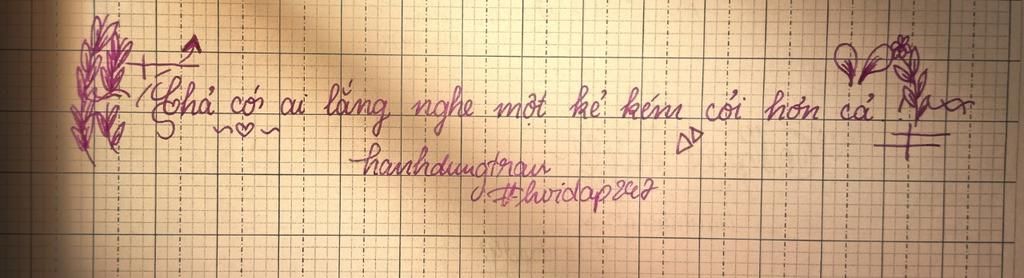 Chả có ai lắng nghe một kẻ kém cỏi hơn cả
hanhdungtran
#hoidap247